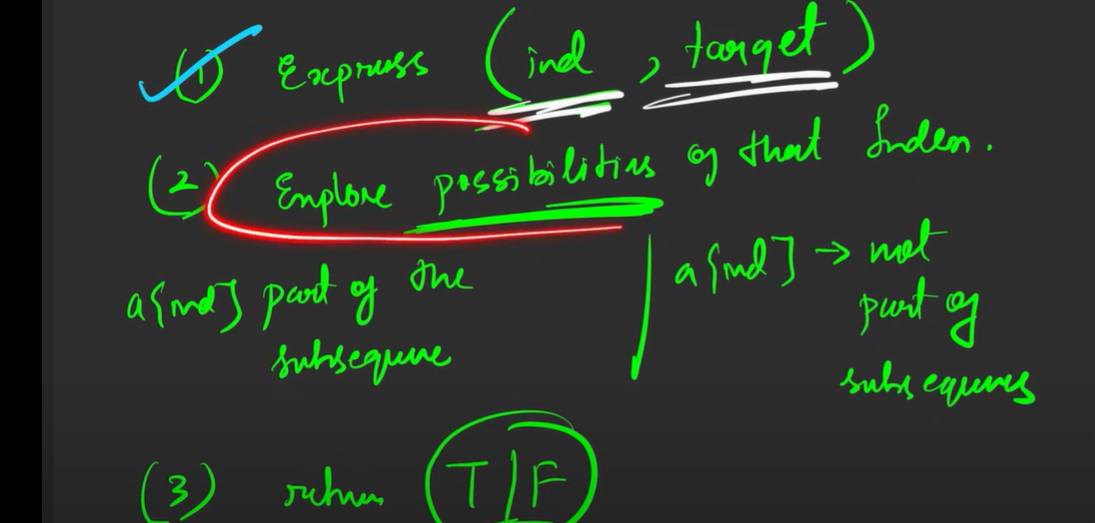 (1) Express (ind, target)
(2) Explore possibilities of that Index.
a[ind] part of the subsequence
a[ind] → not part of subsequences
(3) return T/F